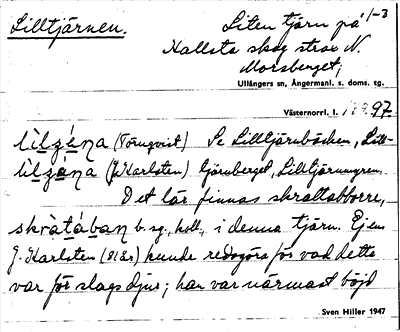 Lilltjärnen.
Liten tjärn på 1/-3
Kallsta skog strax N.
Morsberget,
Ullångers sn, Ångermanl. s. doms. tg.
Västernorrl. l. 97
lìlzána (Törnqvist) Se Lilltjärnbäcken, Lill-
lìlzána (J. Karlsten) tjärnberget, Lilltjärnmyren.
Det lär finnas skrattabborre,
skràtában b. sg., koll., i denna tjärn. Ej en
J. Karlsten (81 år) kunde redogöra för vad detta
var för slags djur; han var närmast böjd
Sven Hiller 1947